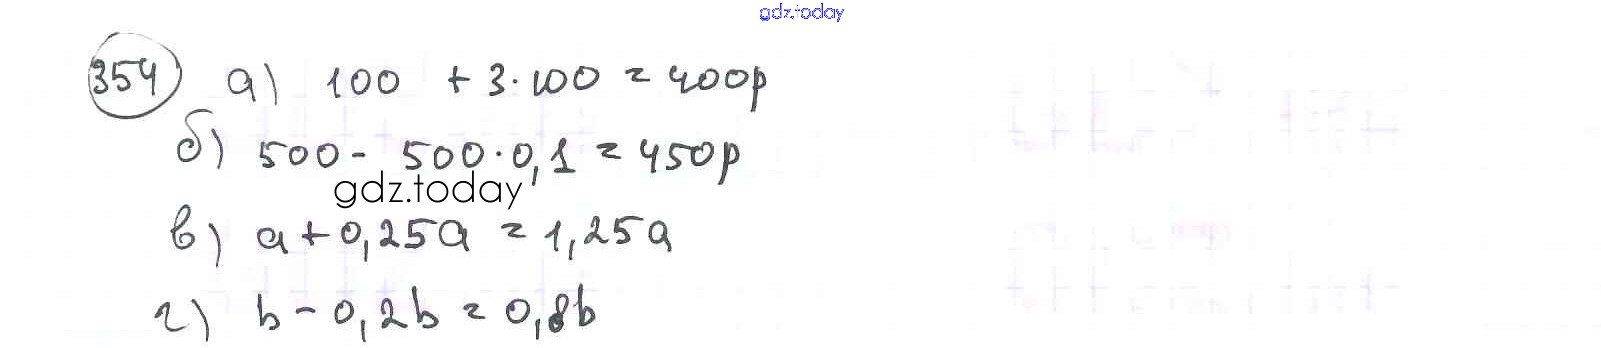 gdz.today
354 а) 100 + 3·100 = 400р
б) 500 - 500·0,1 = 450р
gdz.today
в) a + 0,25a = 1,25a
г) b - 0,2b = 0,8b